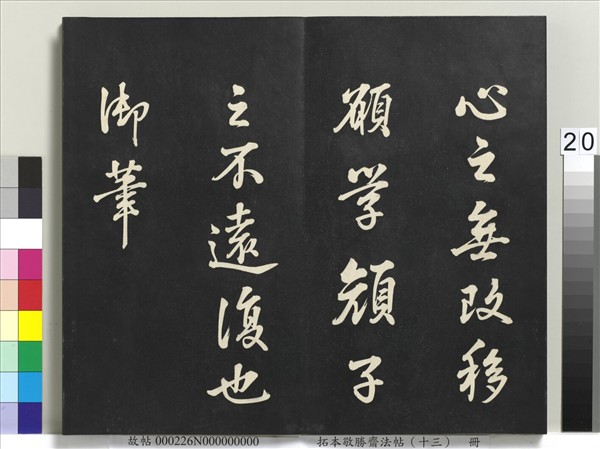 心之無改移
願学顔子
之不遠復也
御筆
20
故帖 000226N000000000 拓本敬勝齋法帖(十三) 冊